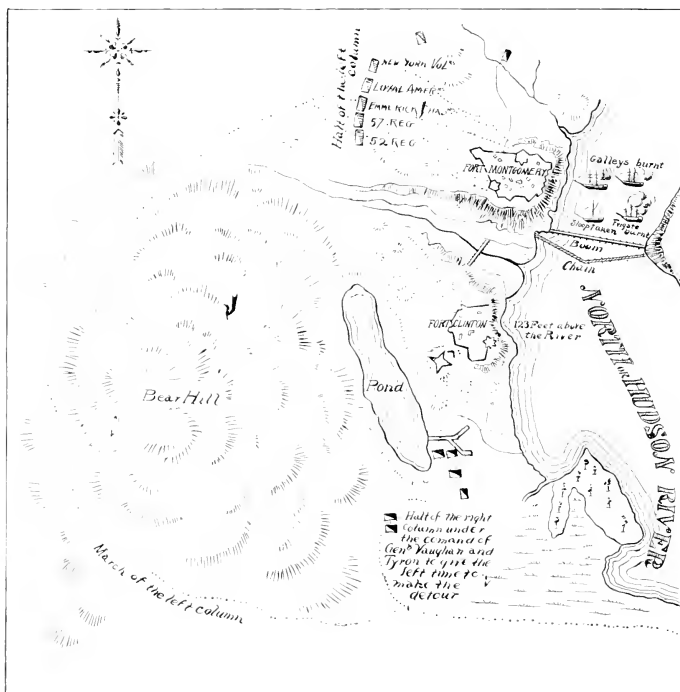 Halt of the left
Column
NEW YORK VOLS
LOYAL AMERS
EMMERICK CHAS
57. REG
52 REG
FORT MONTGOMERY
Galleys burnt
Sloop Taken
Frigate
burnt
Boom
Chain
FORT CLINTON
123 Feet above
the River
NORTH OR HUDSON RIVER
Bear Hill
Pond
Halt of the right
Column under
the comand of
Genls Vaughan and
Tyron to give the
left time to
make the
detour
March of the left column